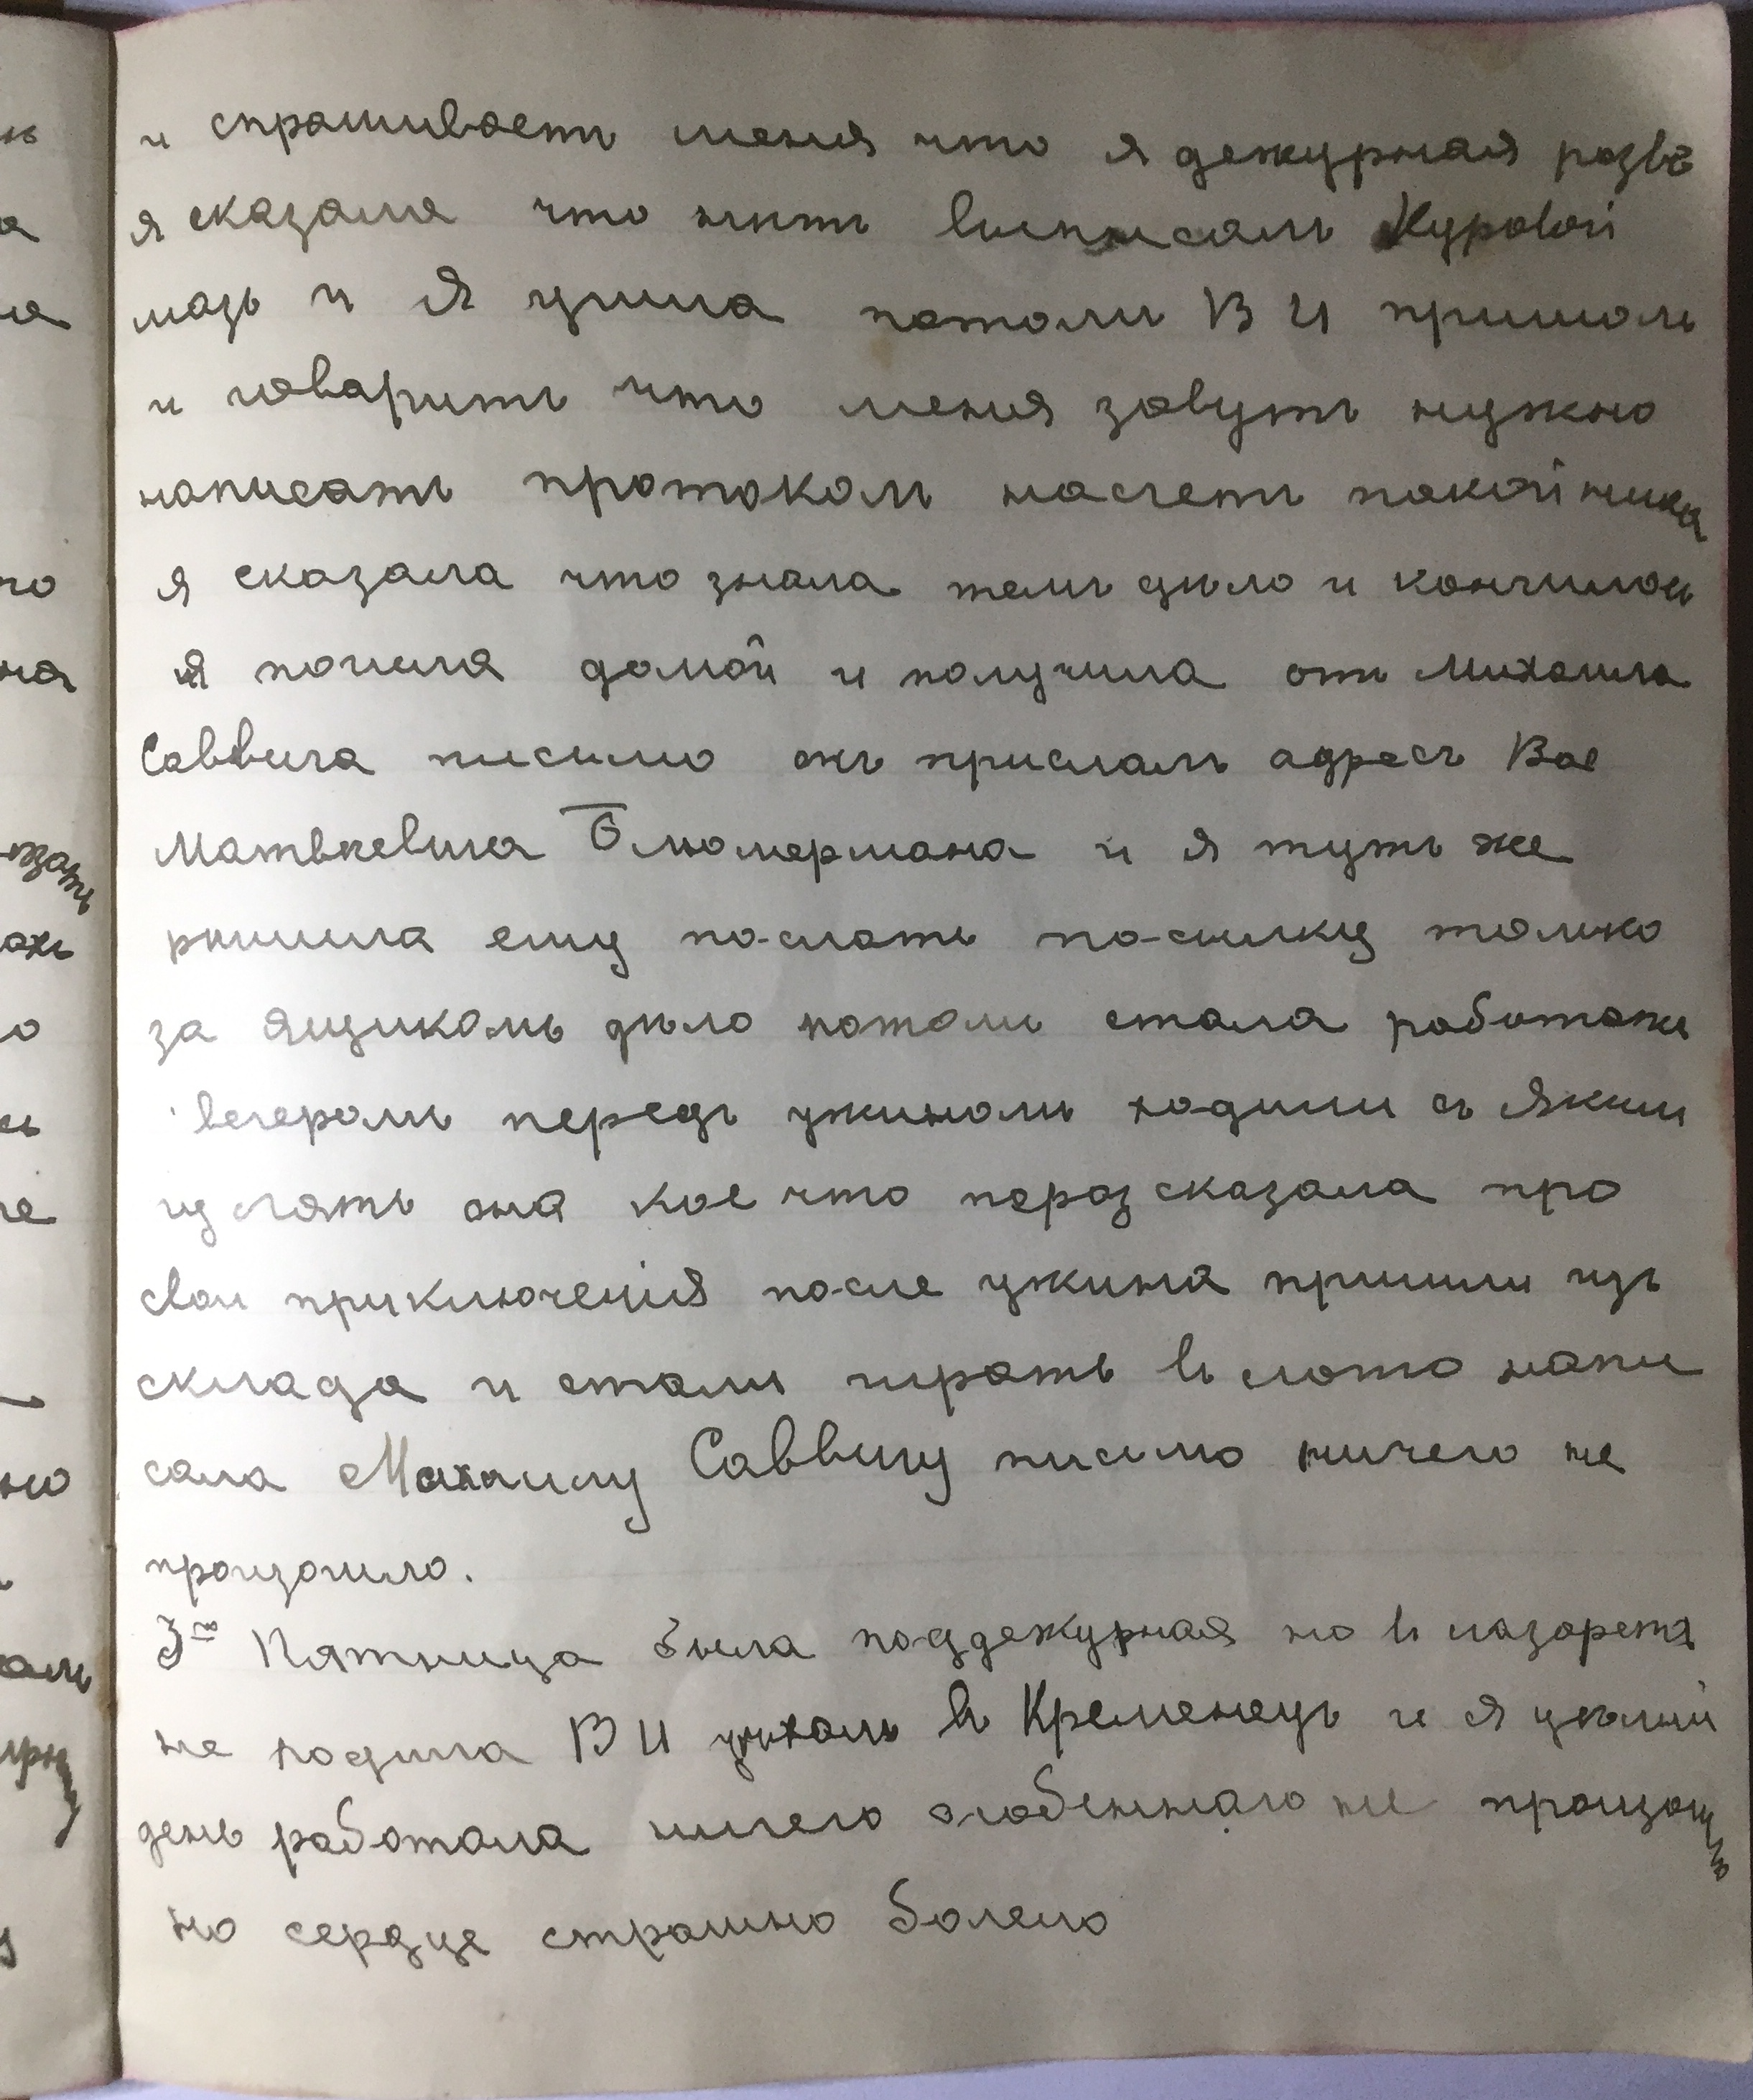 и спрашиваетъ меня что я дежурная развѣ
я сказала что нѣтъ выписалъ Куровой
мазь и я ушла потомъ В И пришолъ
и говаритъ что меня зовутъ нужно
написать протоколъ насчетъ покойника
я сказала что знала темъ дѣло и кончилось
я пошла домой и получила отъ Михаила
Саввича писмо онъ прислалъ адресъ Вас
Матвѣевича Блюмермана и я тутъ же
рѣшила ему послать посылку только
за ящикомъ дѣло потомъ стала работать
вечеромъ передъ ужиномъ ходили съ Яким
гулять она кое что поразсказала про
свои приключенія после ужина пришли изъ
склада и стали играть въ лото напи
сала Михаилу Саввичу письмо ничего не
произошло.
3го Пятница была поддежурная но въ лазарета
не ходила В И уѣхалъ въ Кременецъ и я цѣлый
день работала ничего особеннаго не произошло
но сердце страшно болело